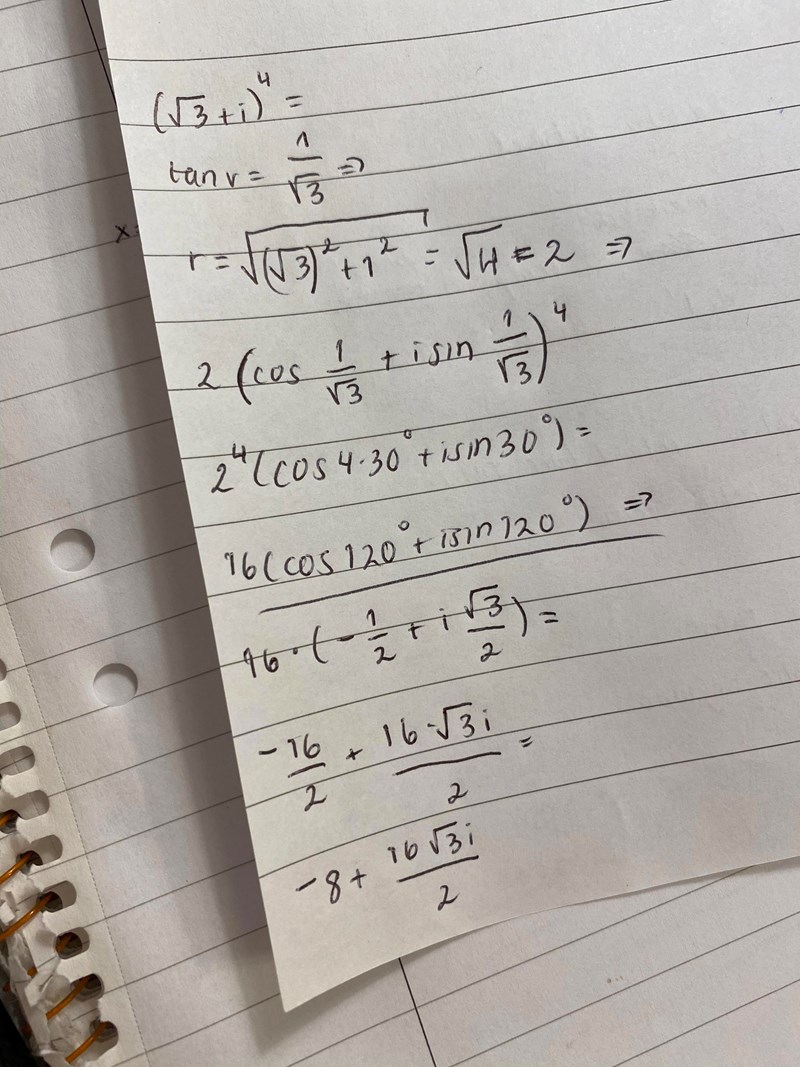 (√3+i)^4 =
tan v = 1/√3 ⇒
x=
r = √((√3)^2+1^2) = √4 = 2 ⇒
2 (cos 1/√3 + i sin 1/√3)^4
2^4(cos 4·30° + isin30°) =
16(cos 120° + isin 120°) ⇒
16·(-1/2 + i √3/2) =
-16/2 + 16·√3i/2 =
-8 + 16√3i/2